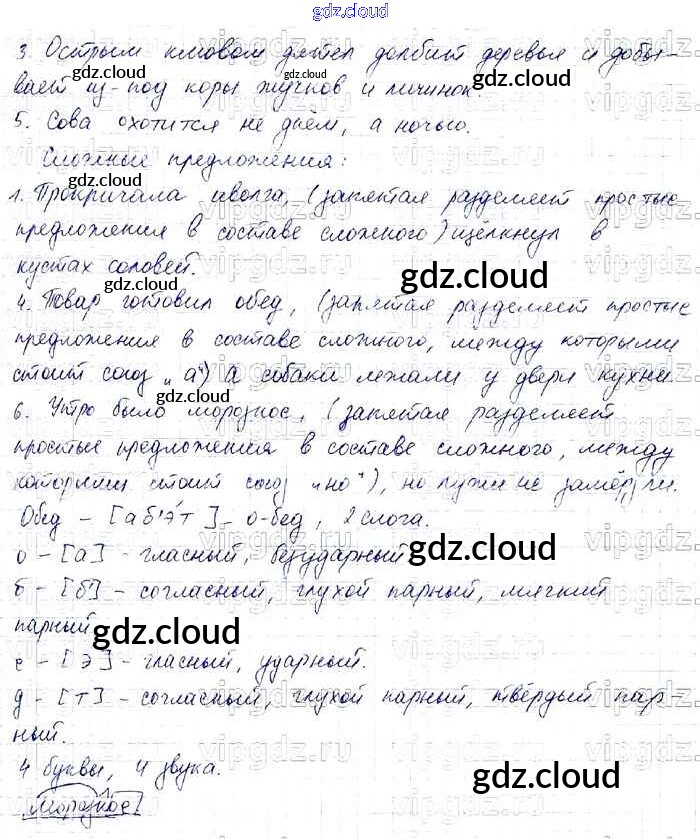 gdz.cloud
3. Острым клювом дятел долбит деревья и добы-
вает из-под коры жучков и личинок.
5. Сова охотится не днём, а ночью.
Сложные предложения:
1. Прокричала иволга, (запятая разделяет простые
предложения в составе сложного) щёлкнул в
кустах соловей.
4. Повар готовил обед, (запятая разделяет простые
предложения в составе сложного, между которыми
стоит союз „а“) а собаки лежали у двери кухни.
6. Утро было морозное, (запятая разделяет
простые предложения в составе сложного, между
которыми стоит союз „но“), но лужи не замёрзли.
Обед – [аб'э́т] – о-бед, 2 слога.
о – [а] – гласный, безударный
б – [б'] – согласный, глухой парный, мягкий
парный
е – [э] – гласный, ударный.
д – [т] – согласный, глухой парный, твёрдый пар-
ный.
4 буквы, 4 звука.
Морозное